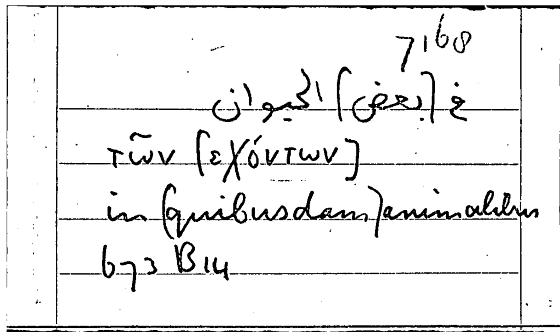 7168
في [بعض] الحيوان
τῶν [ἐχόντων]
in [quibusdam] animalibus
673 B14